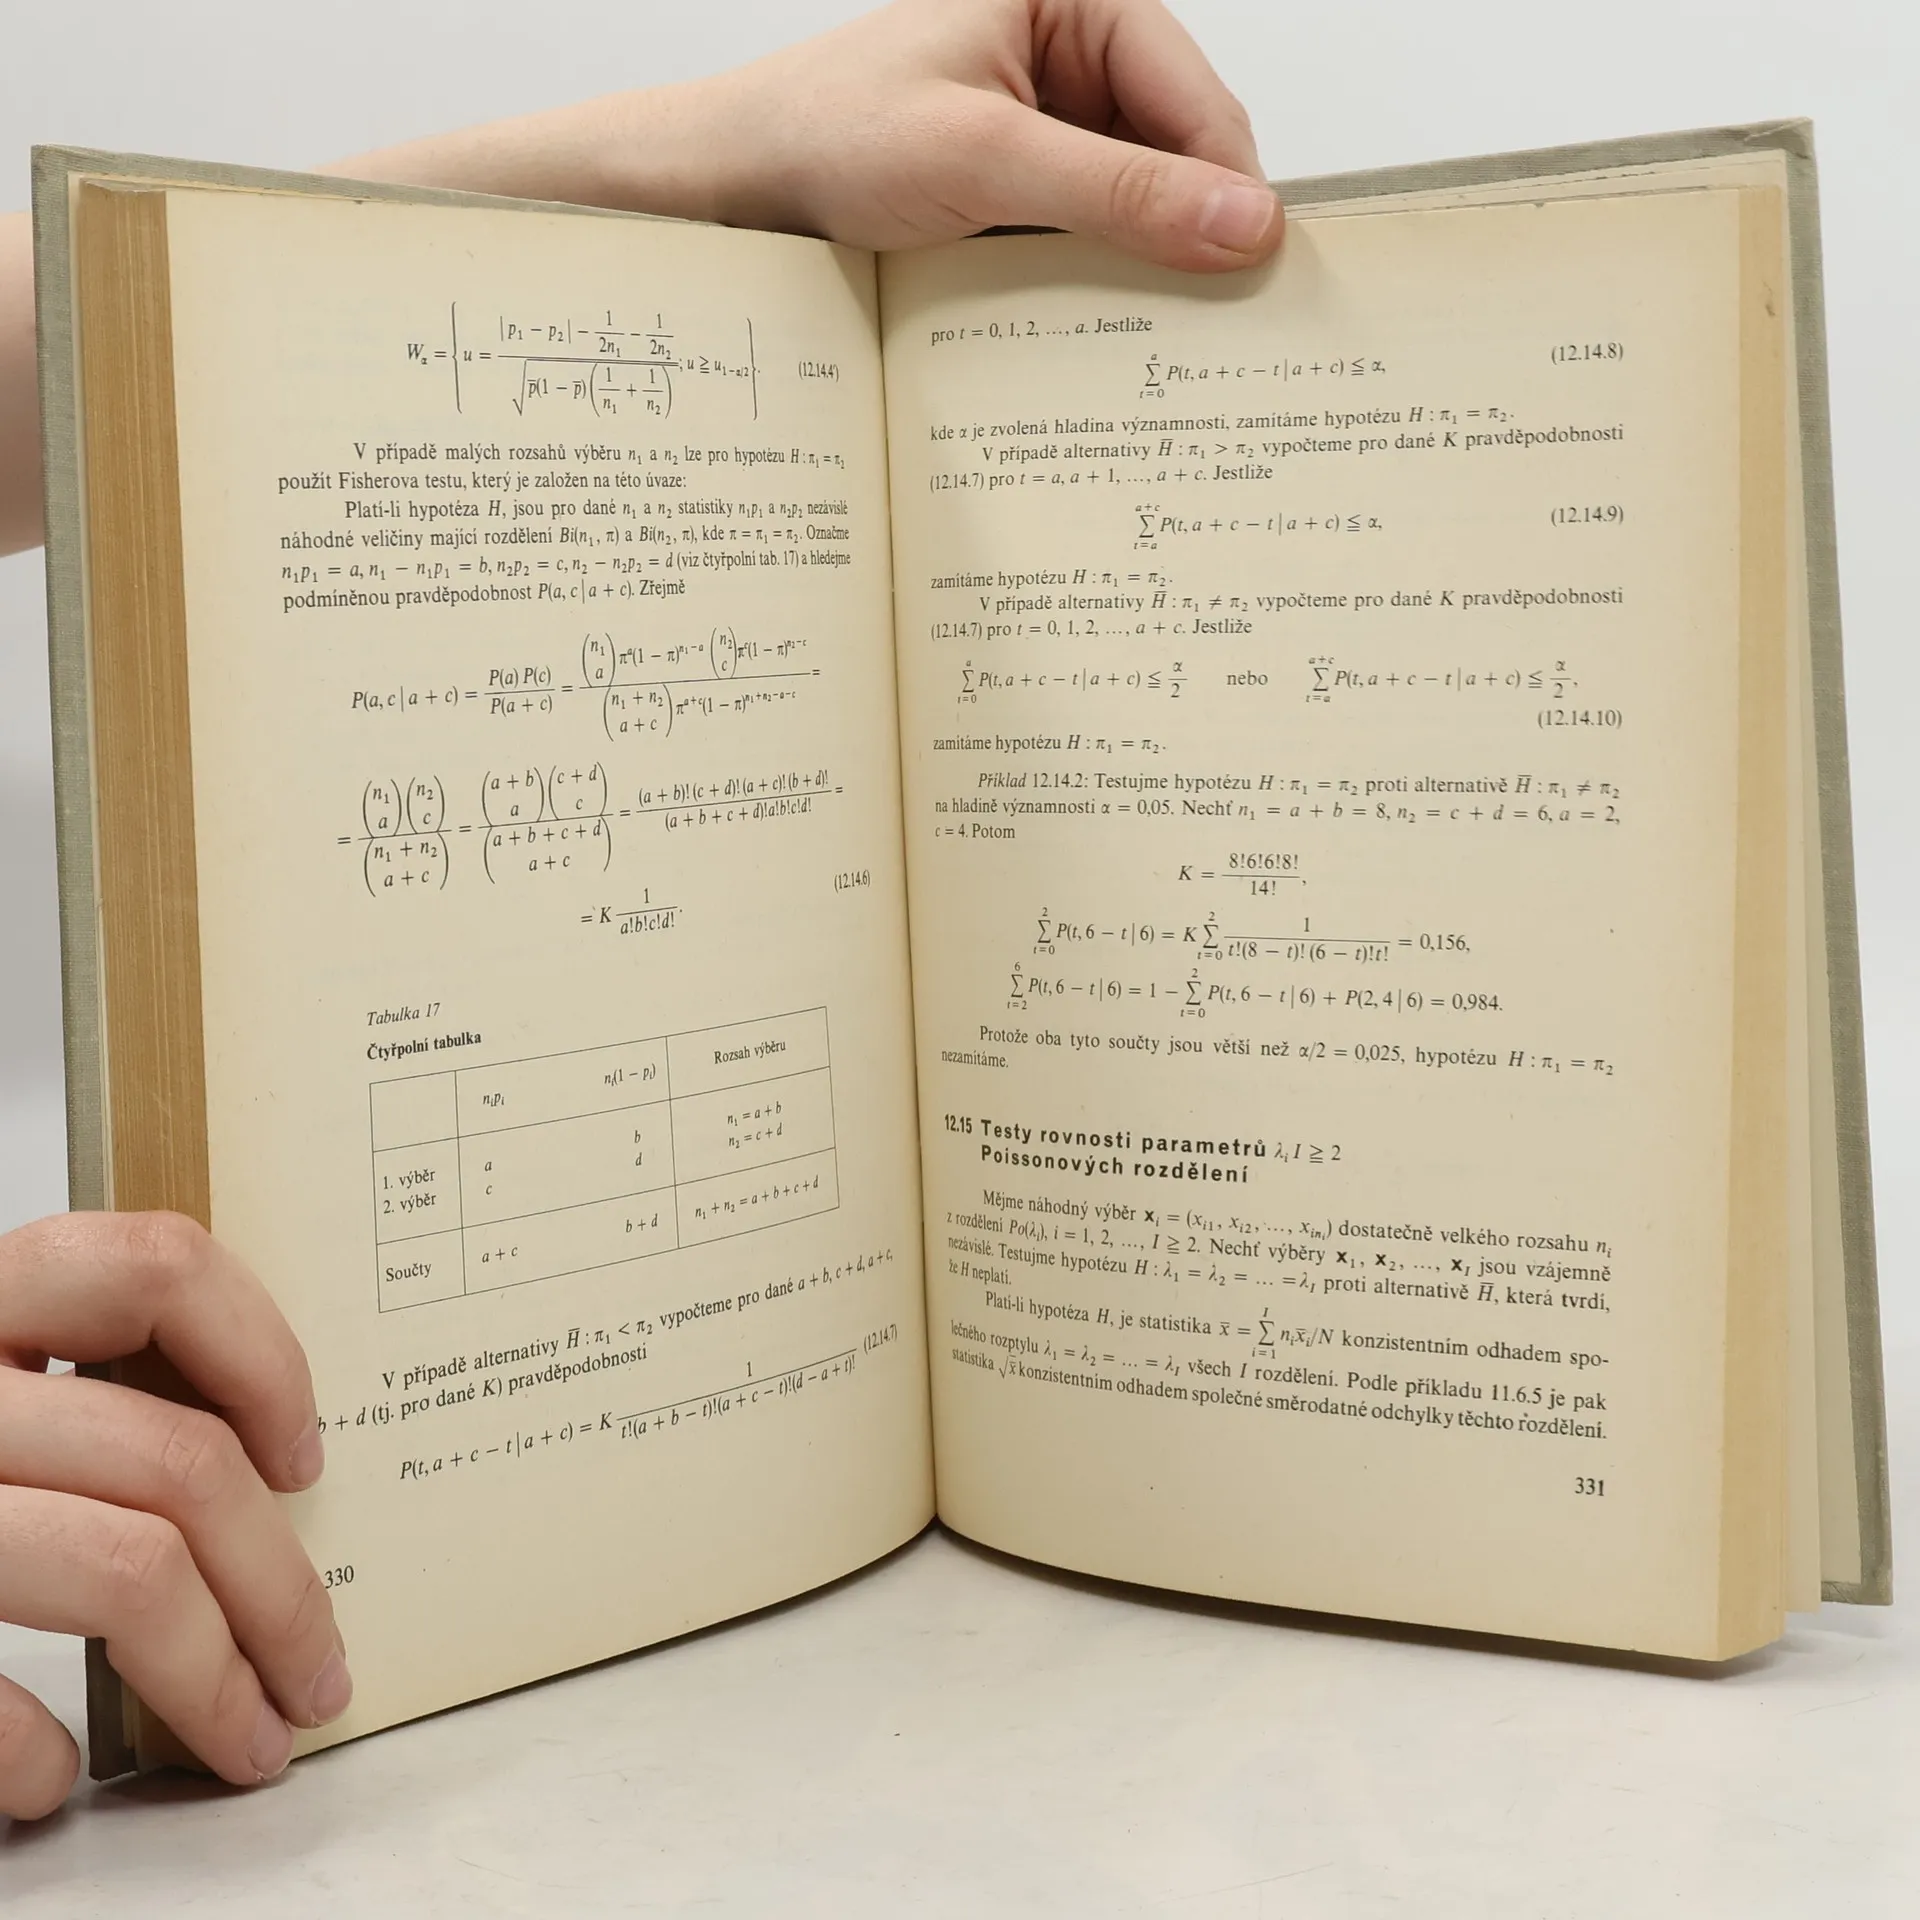 W_α = { u = (|p₁ − p₂| − 1/(2n₁) − 1/(2n₂)) / √(p̅(1 − p̅)(1/n₁ + 1/n₂)) ; u ≧ u_{1−α/2} }. (12.14.4')
V případě malých rozsahů výběru n₁ a n₂ lze pro hypotézu H : π₁ = π₂
použít Fisherova testu, který je založen na této úvaze:
Platí-li hypotéza H, jsou pro dané n₁ a n₂ statistiky n₁p₁ a n₂p₂ nezávislé
náhodné veličiny mající rozdělení Bi(n₁, π) a Bi(n₂, π), kde π = π₁ = π₂. Označme
n₁p₁ = a, n₁ − n₁p₁ = b, n₂p₂ = c, n₂ − n₂p₂ = d (viz čtyřpolní tab. 17) a hledejme
podmíněnou pravděpodobnost P(a, c | a + c). Zřejmě
P(a, c | a + c) = P(a) P(c) / P(a + c) = (n₁ a) π^a(1 − π)^{n₁−a} (n₂ c) π^c(1 − π)^{n₂−c} / (n₁ + n₂ a + c) π^{a+c}(1 − π)^{n₁+n₂−a−c} =
= (n₁ a)(n₂ c) / (n₁ + n₂ a + c) = (a + b a)(c + d c) / (a + b + c + d a + c) = (a + b)! (c + d)! (a + c)! (b + d)! / (a + b + c + d)! a! b! c! d! =
= K 1 / a! b! c! d! . (12.14.6)
Tabulka 17
Čtyřpolní tabulka
nᵢpᵢ nᵢ(1 − pᵢ) Rozsah výběru
1. výběr a b n₁ = a + b
2. výběr c d n₂ = c + d
Součty a + c b + d n₁ + n₂ = a + b + c + d
V případě alternativy H̅ : π₁ < π₂ vypočteme pro dané a + b, c + d, a + c,
b + d (tj. pro dané K) pravděpodobnosti
P(t, a + c − t | a + c) = K 1 / t! (a + b − t)! (a + c − t)! (d − a + t)! (12.14.7)
330
pro t = 0, 1, 2, ..., a. Jestliže
∑_{t=0}^{a} P(t, a + c − t | a + c) ≦ α, (12.14.8)
kde α je zvolená hladina významnosti, zamítáme hypotézu H : π₁ = π₂.
V případě alternativy H̅ : π₁ > π₂ vypočteme pro dané K pravděpodobnosti
(12.14.7) pro t = a, a + 1, ..., a + c. Jestliže
∑_{t=a}^{a+c} P(t, a + c − t | a + c) ≦ α, (12.14.9)
zamítáme hypotézu H : π₁ = π₂.
V případě alternativy H̅ : π₁ ≠ π₂ vypočteme pro dané K pravděpodobnosti
(12.14.7) pro t = 0, 1, 2, ..., a + c. Jestliže
∑_{t=0}^{a} P(t, a + c − t | a + c) ≦ α/2 nebo ∑_{t=a}^{a+c} P(t, a + c − t | a + c) ≦ α/2,
(12.14.10)
zamítáme hypotézu H : π₁ = π₂.
Příklad 12.14.2: Testujme hypotézu H : π₁ = π₂ proti alternativě H̅ : π₁ ≠ π₂
na hladině významnosti α = 0,05. Nechť n₁ = a + b = 8, n₂ = c + d = 6, a = 2,
c = 4. Potom
K = 8!6!6!8! / 14! ,
∑_{t=0}^{2} P(t, 6 − t | 6) = K ∑_{t=0}^{2} 1 / t! (8 − t)! (6 − t)! t! = 0,156,
∑_{t=2}^{6} P(t, 6 − t | 6) = 1 − ∑_{t=0}^{2} P(t, 6 − t | 6) + P(2, 4 | 6) = 0,984.
Protože oba tyto součty jsou větší než α/2 = 0,025, hypotézu H : π₁ = π₂
nezamítáme.
12.15 Testy rovnosti parametrů λᵢ I ≧ 2
Poissonových rozdělení
Mějme náhodný výběr xᵢ = (xᵢ₁, xᵢ₂, ..., x_{inᵢ}) dostatečně velkého rozsahu nᵢ
z rozdělení Po(λᵢ), i = 1, 2, ..., I ≧ 2. Nechť výběry x₁, x₂, ..., x_I jsou vzájemně
nezávislé. Testujme hypotézu H : λ₁ = λ₂ = ... = λ_I proti alternativě H̅, která tvrdí,
že H neplatí.
Platí-li hypotéza H, je statistika x̅ = ∑_{i=1}^{I} nᵢx̅ᵢ/N konzistentním odhadem spo-
lečného rozptylu λ₁ = λ₂ = ... = λ_I všech I rozdělení. Podle příkladu 11.6.5 je pak
statistika √x̅ konzistentním odhadem společné směrodatné odchylky těchto rozdělení.
331